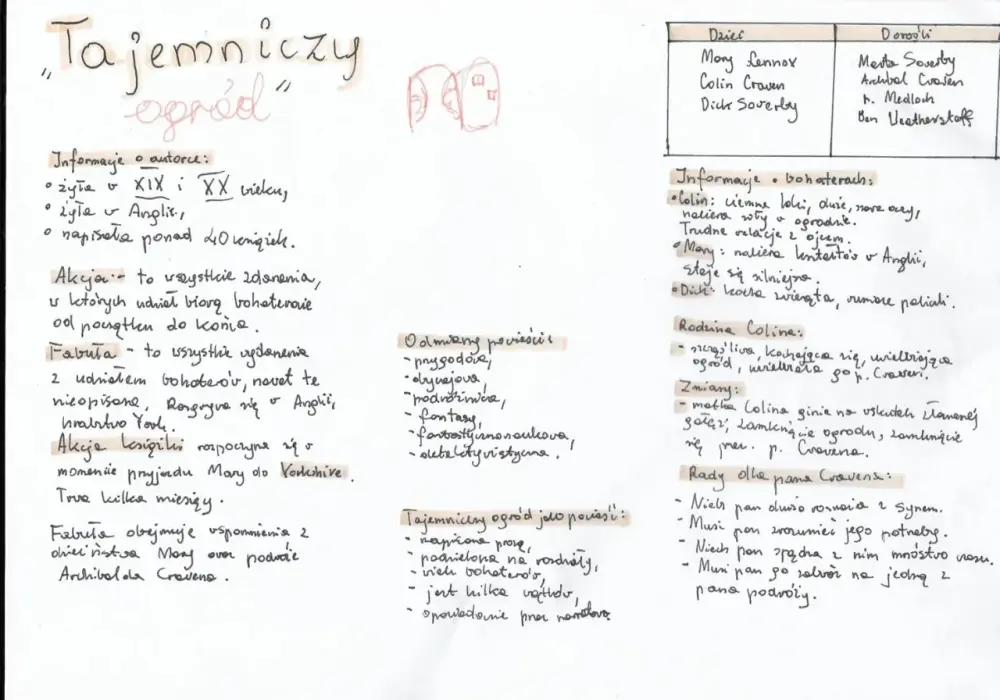 „Tajemniczy
ogród"
Informacje o autorce:
• żyła w XIX i XX wieku,
• żyła w Anglii,
• napisała ponad 40 książek.
Akcja - to wszystkie zdarzenia,
w których udział biorą bohaterowie
od początku do końca.
Fabuła - to wszystkie wydarzenia
z udziałem bohaterów, nawet te
nieopisane. Rozgrywa się w Anglii,
hrabstwo York.
Akcja książki rozpoczyna się w
momencie przyjazdu Mary do Yorkshire.
Trwa kilka miesięcy.
Fabuła obejmuje wspomnienia z
dzieciństwa Mary oraz podróże
Archibalda Cravena.
Odmiany powieści:
- przygodowa,
- obyczajowa,
- podróżnicza,
- fantasy,
- fantastycznonaukowa,
- detektywistyczna.
Tajemniczy ogród jako powieść:
- napisana prozą,
- podzielona na rozdziały,
- wielu bohaterów,
- jest kilka wątków,
- opowiadanie przez narratora.
Dzieci Dorośli
Mary Lennox Marta Sowerby
Colin Craven Archibal Craven
Dick Sowerby p. Medloch
Ben Weatherstaff
Informacje o bohaterach:
• Colin: ciemne loki, duże, szare oczy,
nabiera siły w ogrodzie.
Trudne relacje z ojcem.
• Mary: nabiera kontaktów w Anglii,
staje się silniejsza.
• Dick: kocha zwierzęta, rumiane policzki.
Rodzina Colina:
- szczęśliwa, kochająca się, uwielbiająca
ogród, uwielbiała go p. Craven.
Zmiany:
- matka Colina ginie na wskutek złamanej
gałęzi, zamknięcie ogrodu, zamknięcie
się prez. p. Cravena.
Rady dla pana Cravena:
- Niech pan dużo rozmawia z synem.
- Musi pan zrozumieć jego potrzeby.
- Niech pan spędza z nim mnóstwo czasu.
- Musi pan go zabrać na jedną z
pana podróży.